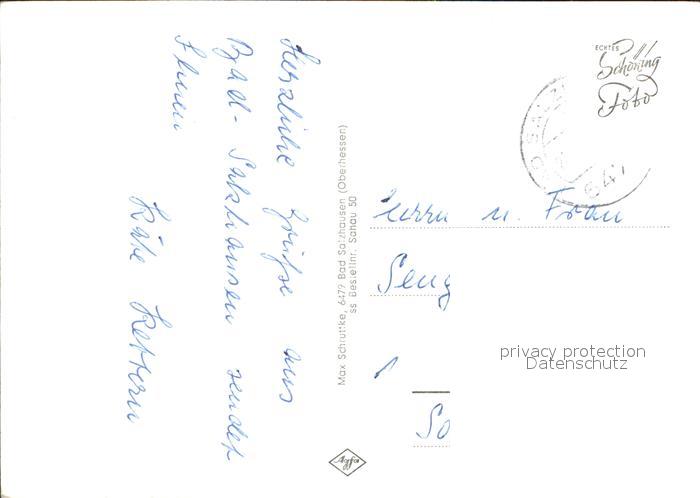 Herzliche Grüße aus
Bad-Salzhausen sendet
Ihnen
Käte Kettern
Max Schruttke, 6479 Bad Salzhausen (Oberhessen)
ss Bestellnr. Sanau 50
ECHTES
Schöning
Foto
647
Herrn u. Frau
Seng
So
privacy protection
Datenschutz
Agfa